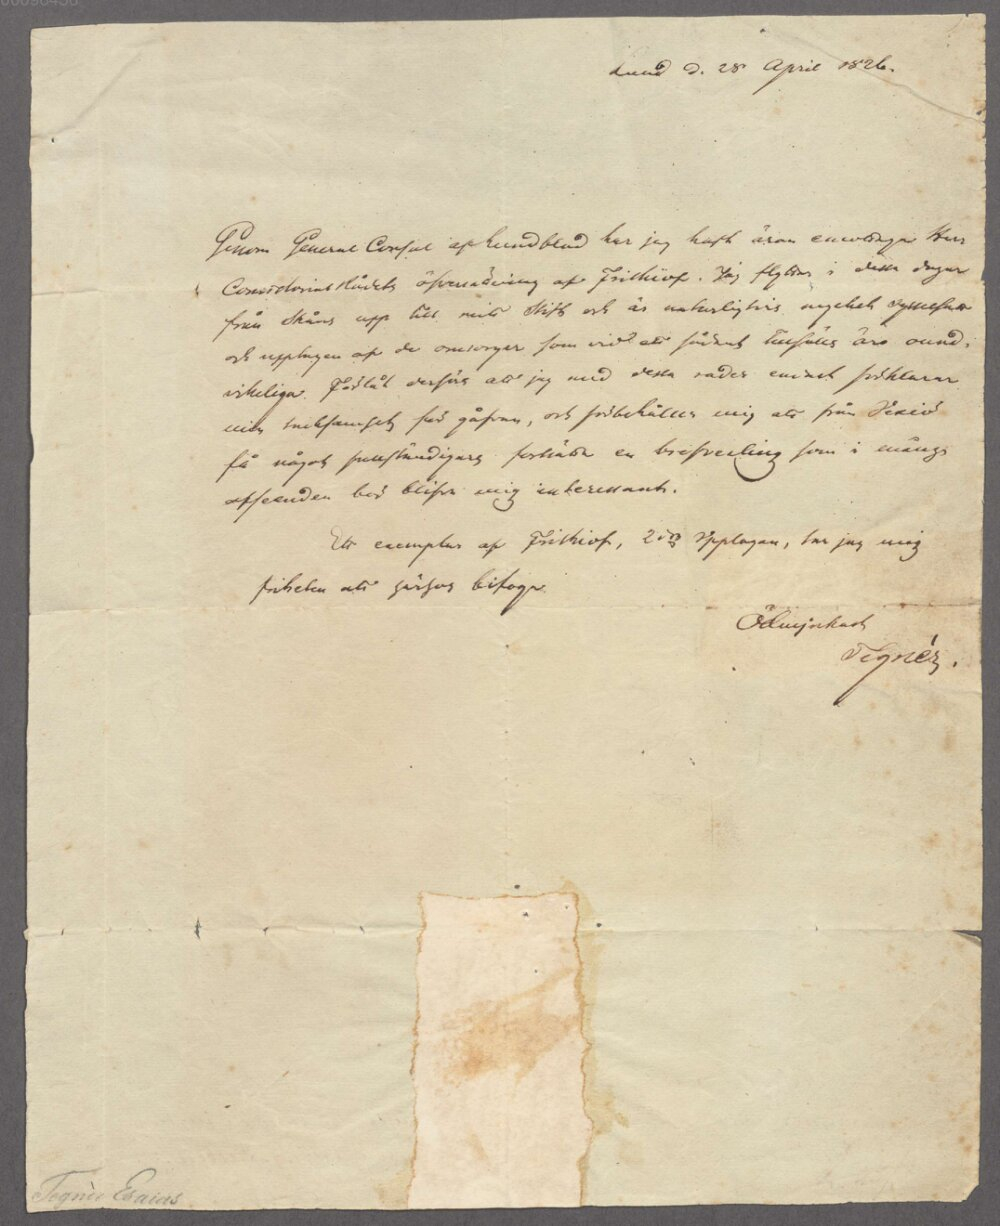 Lund d. 28 April 1826.
Genom General Consul af Lundblad har jag haft äran emottaga Herr
Consistorial Rådets öfversättning af Frithiof. Jag flyttar i dessa dagar
från Skåne upp till mitt Stift och är naturligtvis mycket sysselsatt
och upptagen af de omsorger som vid ett sådant tillfälle äro ound-
vikeliga. Förlåt derföre att jag med dessa rader endast förklarar
min tacksamhet för gåfvan, och förbehåller mig att från Vexiö
få något fullständigare fortsätta en brefvexling som i många
afseenden bör blifva mig interessant.
Ett exemplar af Frithiof, 2dra Upplagan, tar jag mig
friheten att härhos bifoga.
Ödmjukast
Tegnér.
Tegnér Esaias